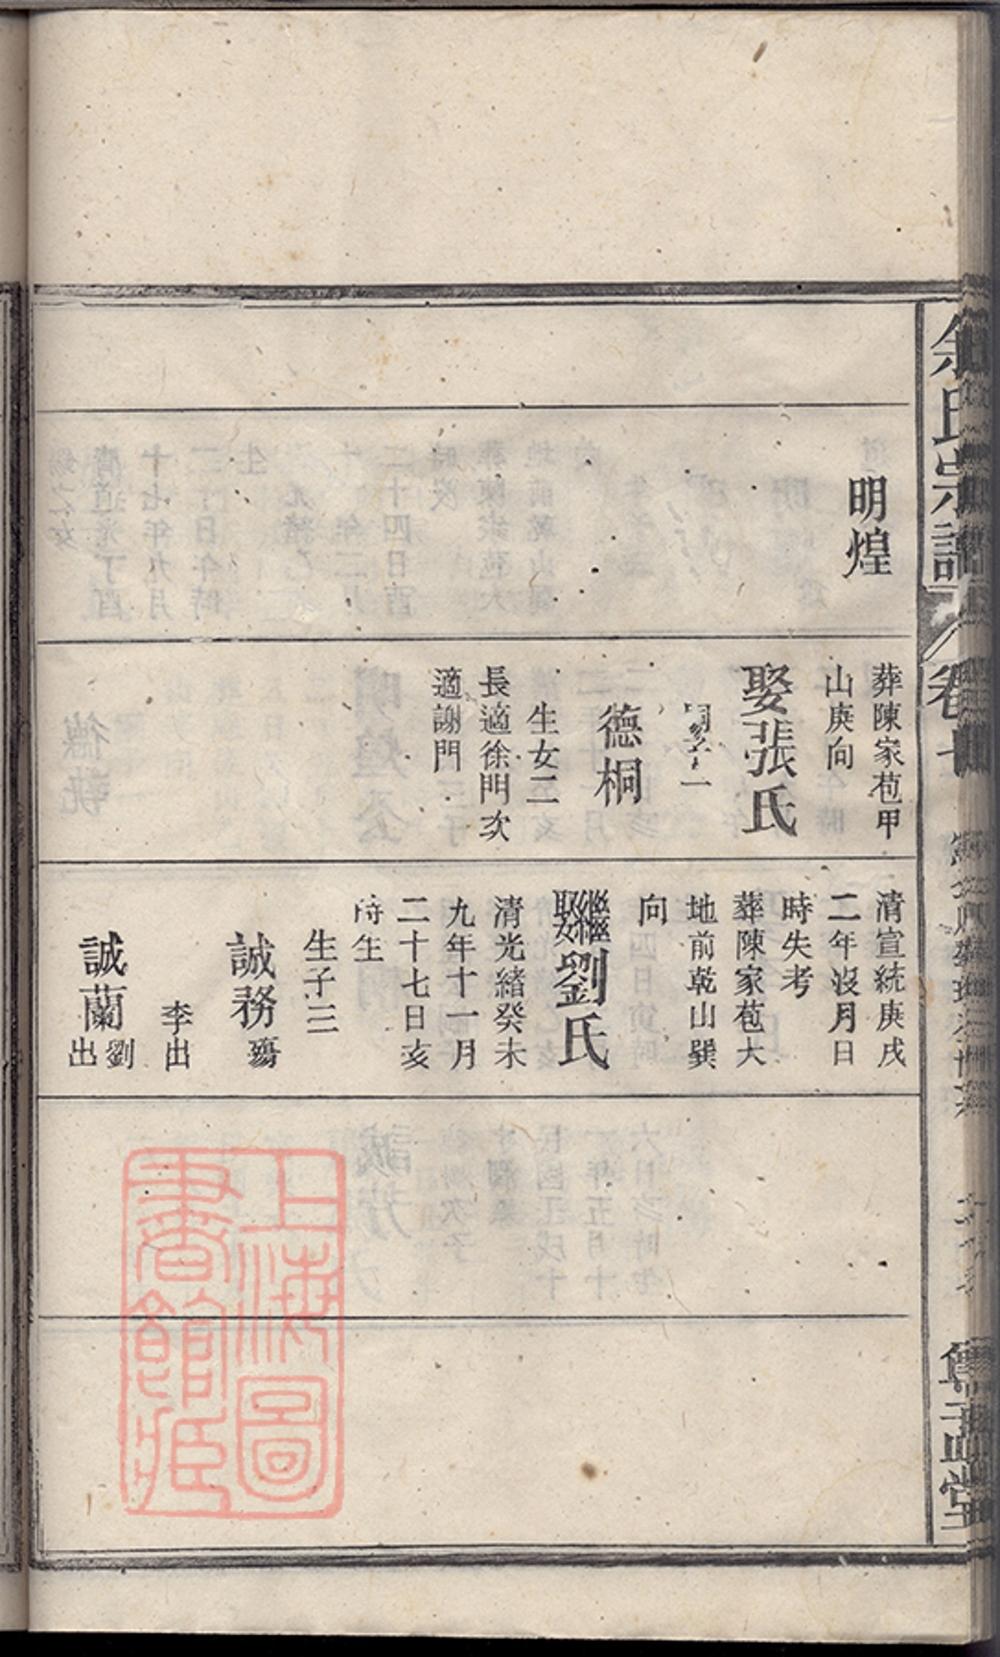 余氏宗譜
卷七
明煌
葬陳家苞甲
山庚向
娶張氏
德桐
生女二
長適徐門次
適謝門
清宣統庚戌
二年沒月日
時失考
葬陳家苞大
地前乾山巽
向
繼娶劉氏
清光緒癸未
九年十一月
二十七日亥
時生
生子三
誠務 殤
李出
誠蘭 劉出
上海圖
書館藏